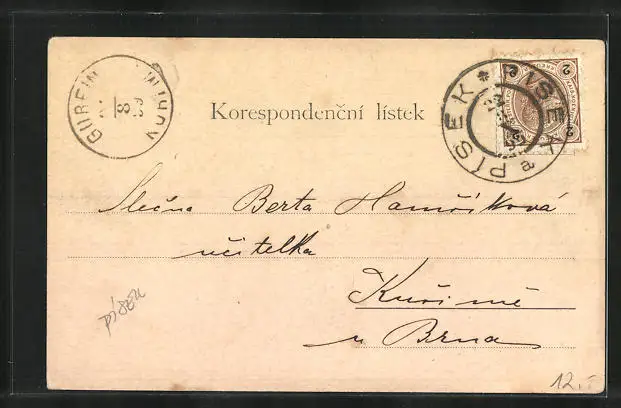 GUREIN
8
Korespondenční lístek
PÍSEK * PISEK
2 2
2
Slečna Berta Hamršíková
učitelka
Kuřimě
u Brna
písek
12.-